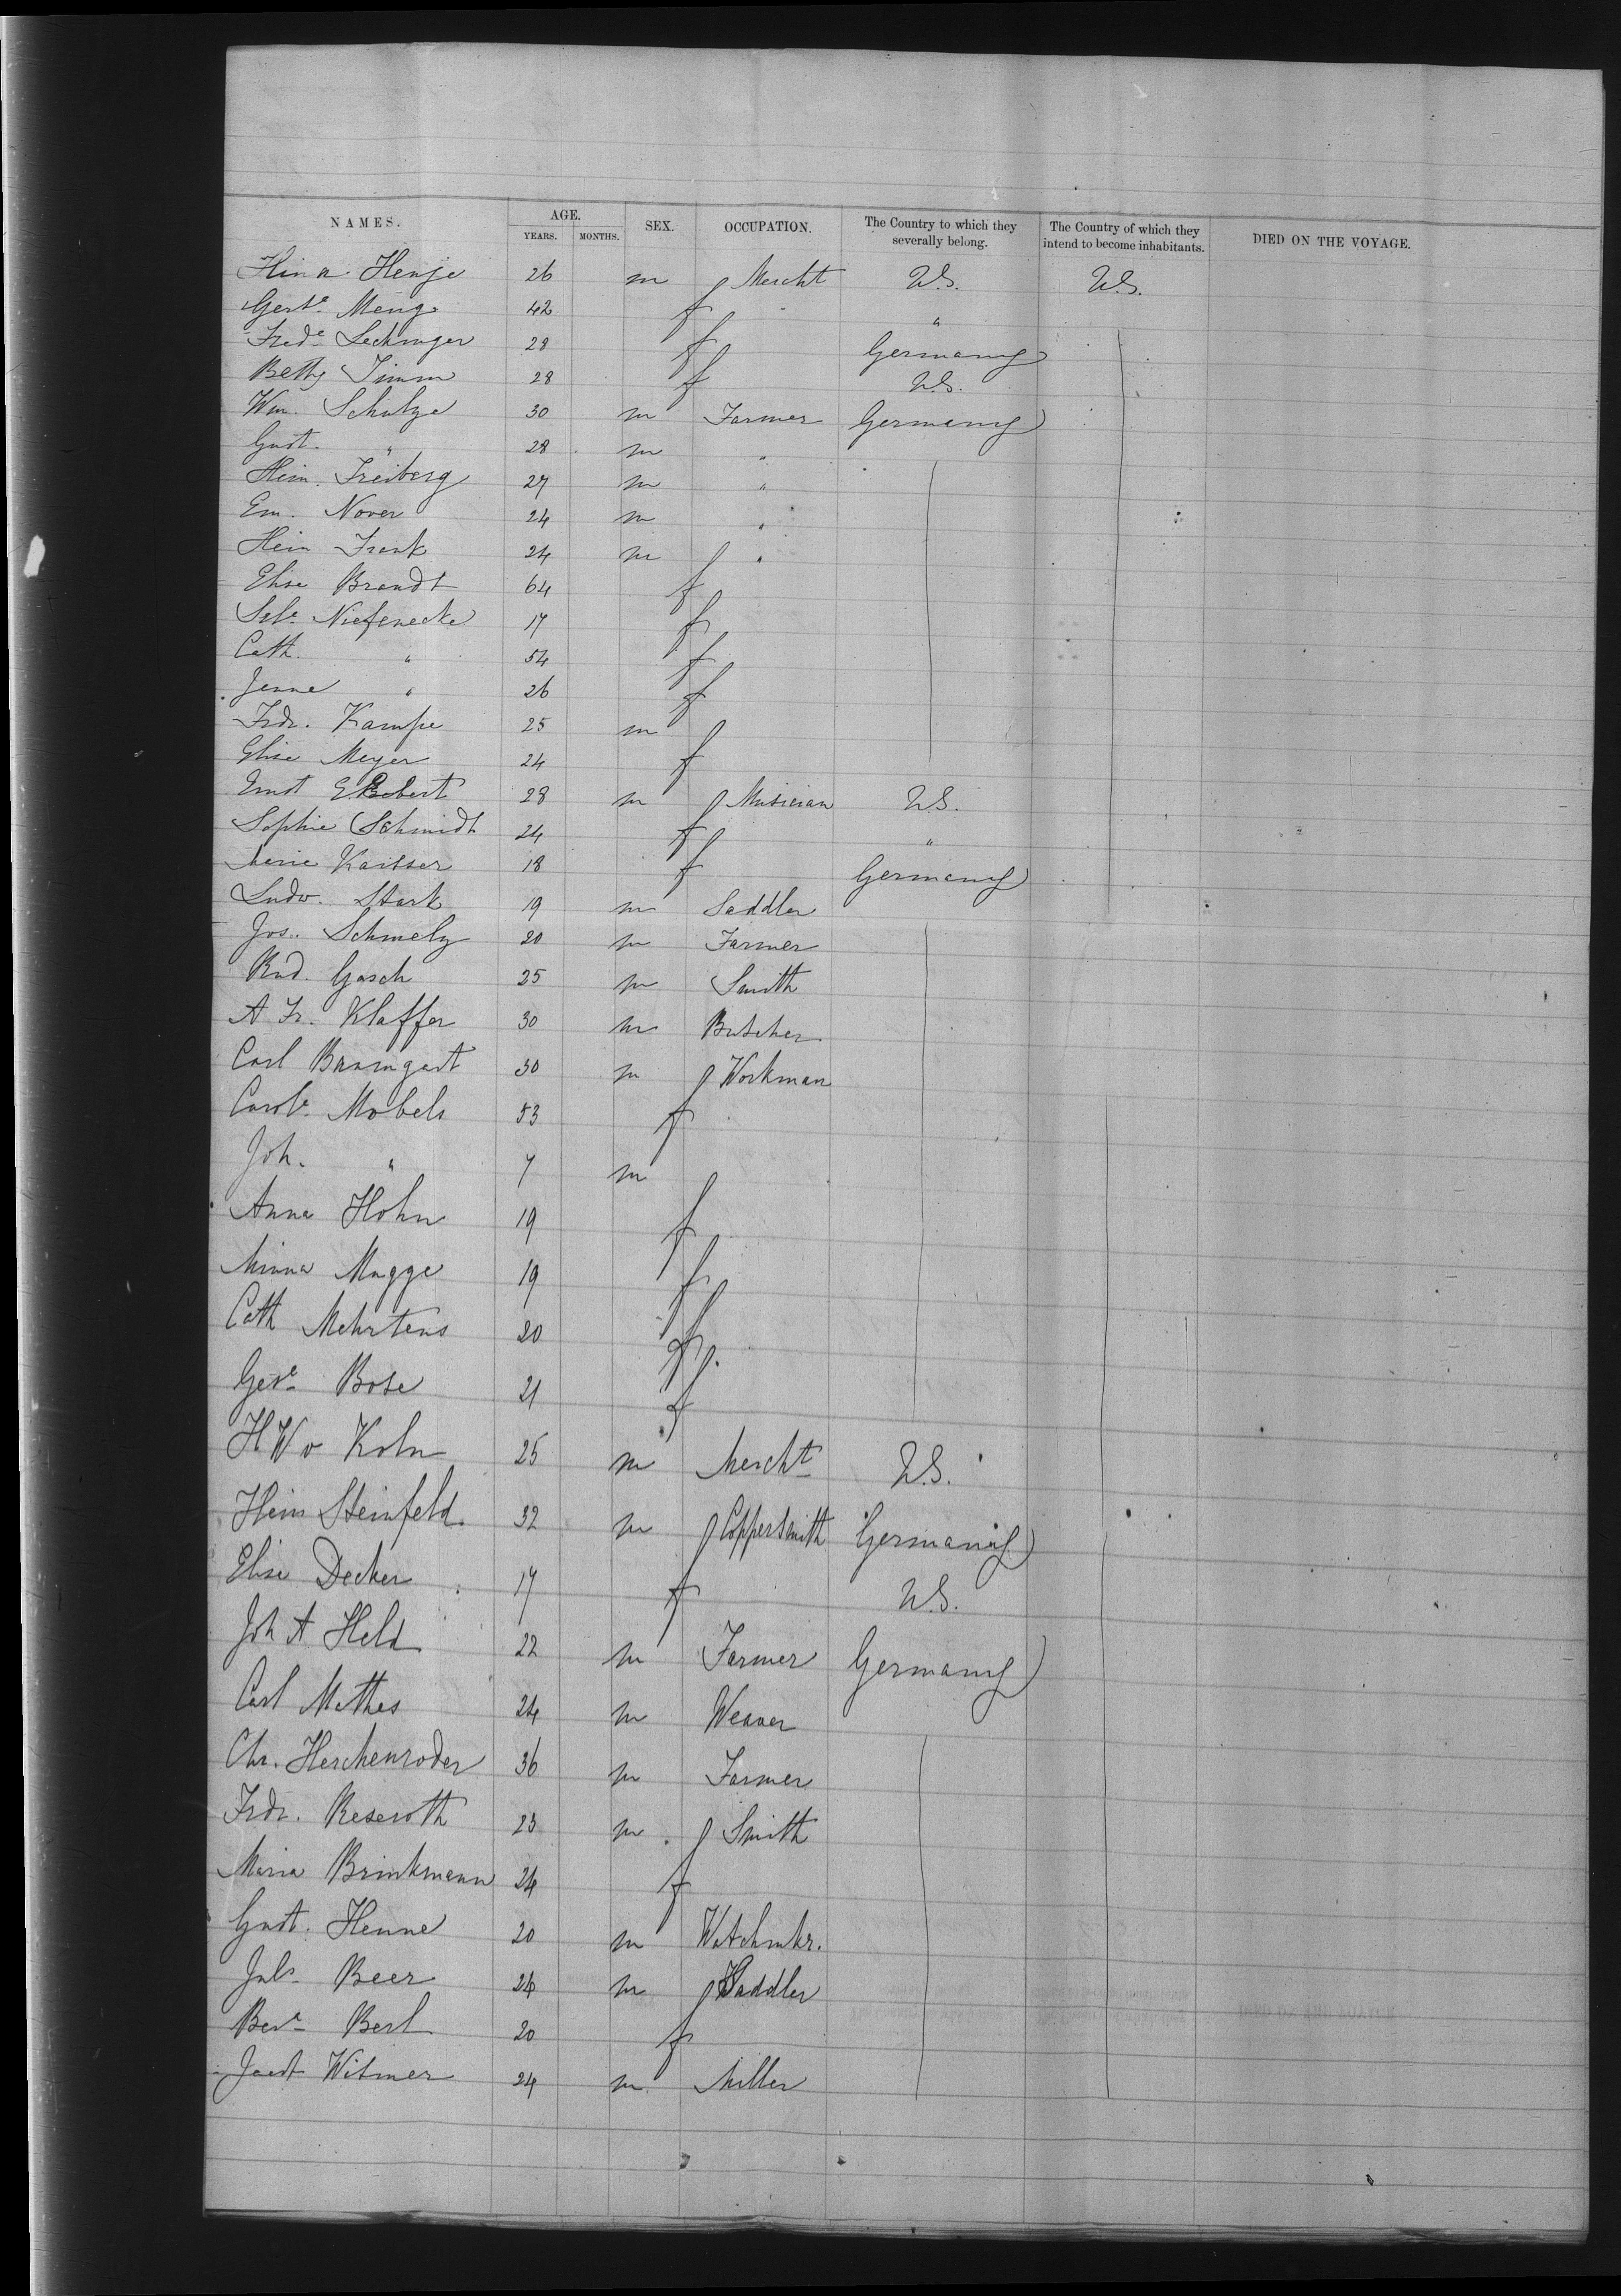 NAMES. AGE. YEARS. MONTHS. SEX. OCCUPATION. The Country to which they severally belong. The Country of which they intend to become inhabitants. DIED ON THE VOYAGE.
Hin a Henje 26 m Mercht U.S. U.S.
Gert. Meng 42 f "
Frede Lechinger 28 f Germany
Betty Timm 28 f U.S.
Wm. Schulze 30 m Farmer Germany
Gust. " 28 m "
Hein. Freiberg 27 m "
Em. Nover 24 m "
Hein Frank 24 m "
Elise Brandt 64 f
Niefenecke 17 f
Cath. " 54 f
Jenne " 26 f
Frdr. Kampe 25 m
Elise Meyer 24 f
Ernst Eckebert 28 m Musician U.S.
Sophie Schmidt 24 f "
Merie Kaisser 18 f Germany
Ludw. Stark 19 m Saddler
Jos. Schmelz 20 m Farmer
Rud. Gasch 25 m Smith
A Fr. Klaffer 30 m Butcher
Carl Baumgart 30 m Workman
Carol. Mobels 53 f
Joh. " 7 m
Anna Hohn 19 f
Minna Mugge 19 f
Cath Mehrtens 20 f
Bose 21 f
H W v Koln 25 m Mercht U.S.
Hein Steinfeld 32 m Coppersmith Germany
Elise Decker 17 f U.S.
Joh A Held 22 m Farmer Germany
Carl Mathes 24 m Weaver
Chr. Herchenroder 36 m Farmer
Frdr. Reseroth 23 m Smith
Maria Brinkmann 24 f
Gust. Henne 20 m Watchmkr.
Juls Beer 24 m Saddler
Berl 20 f
Witmer 24 m Miller